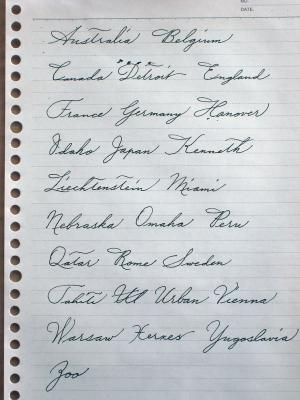 NO.
DATE.
Australia Belgium
Canada Detroit England
France Germany Hanover
Idaho Japan Kenneth
Liechtenstein Miami
Nebraska Omaha Peru
Qatar Rome Sweden
Tahiti Urban Vienna
Warsaw Xerxes Yugoslavia
Zoo